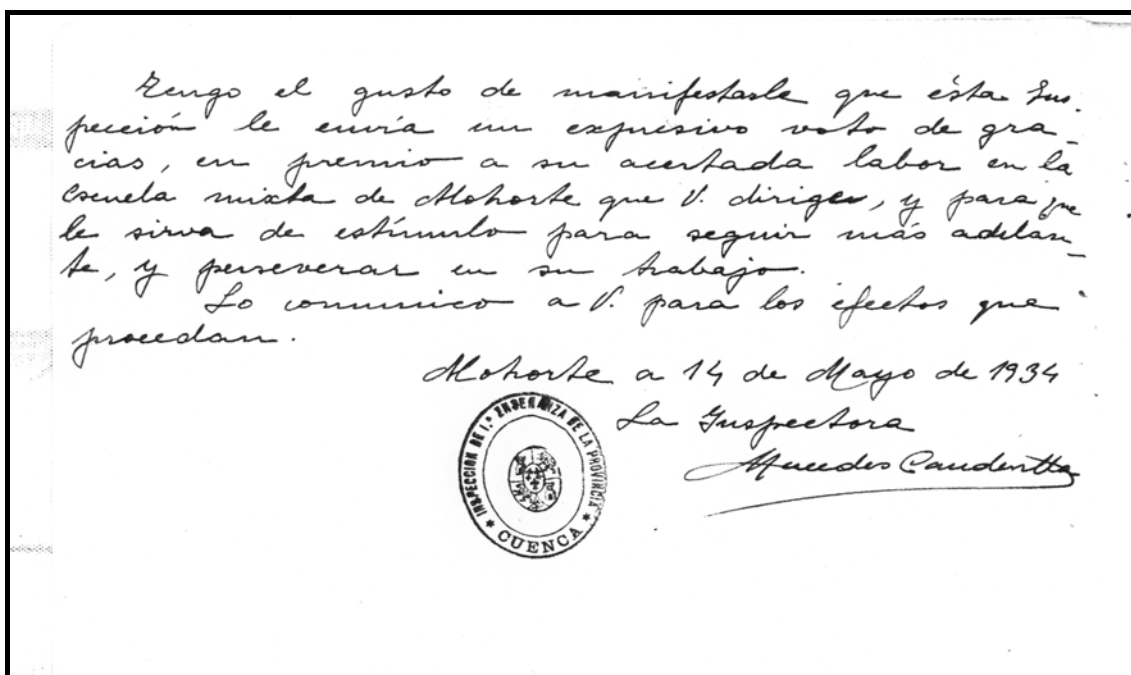 Tengo el gusto de manifestarle que ésta Ins-
pección le envía un expresivo voto de gra-
cias, en premio a su acertada labor en la
escuela mixta de Mohorte que V. dirige, y para que
le sirva de estímulo para seguir más adelan-
te, y perseverar en su trabajo.
Lo comunico a V. para los efectos que
procedan.
Mohorte a 14 de Mayo de 1934
La Inspectora
Mercedes
INSPECCIÓN DE 1.ª ENSEÑANZA DE LA PROVINCIA
* CUENCA *